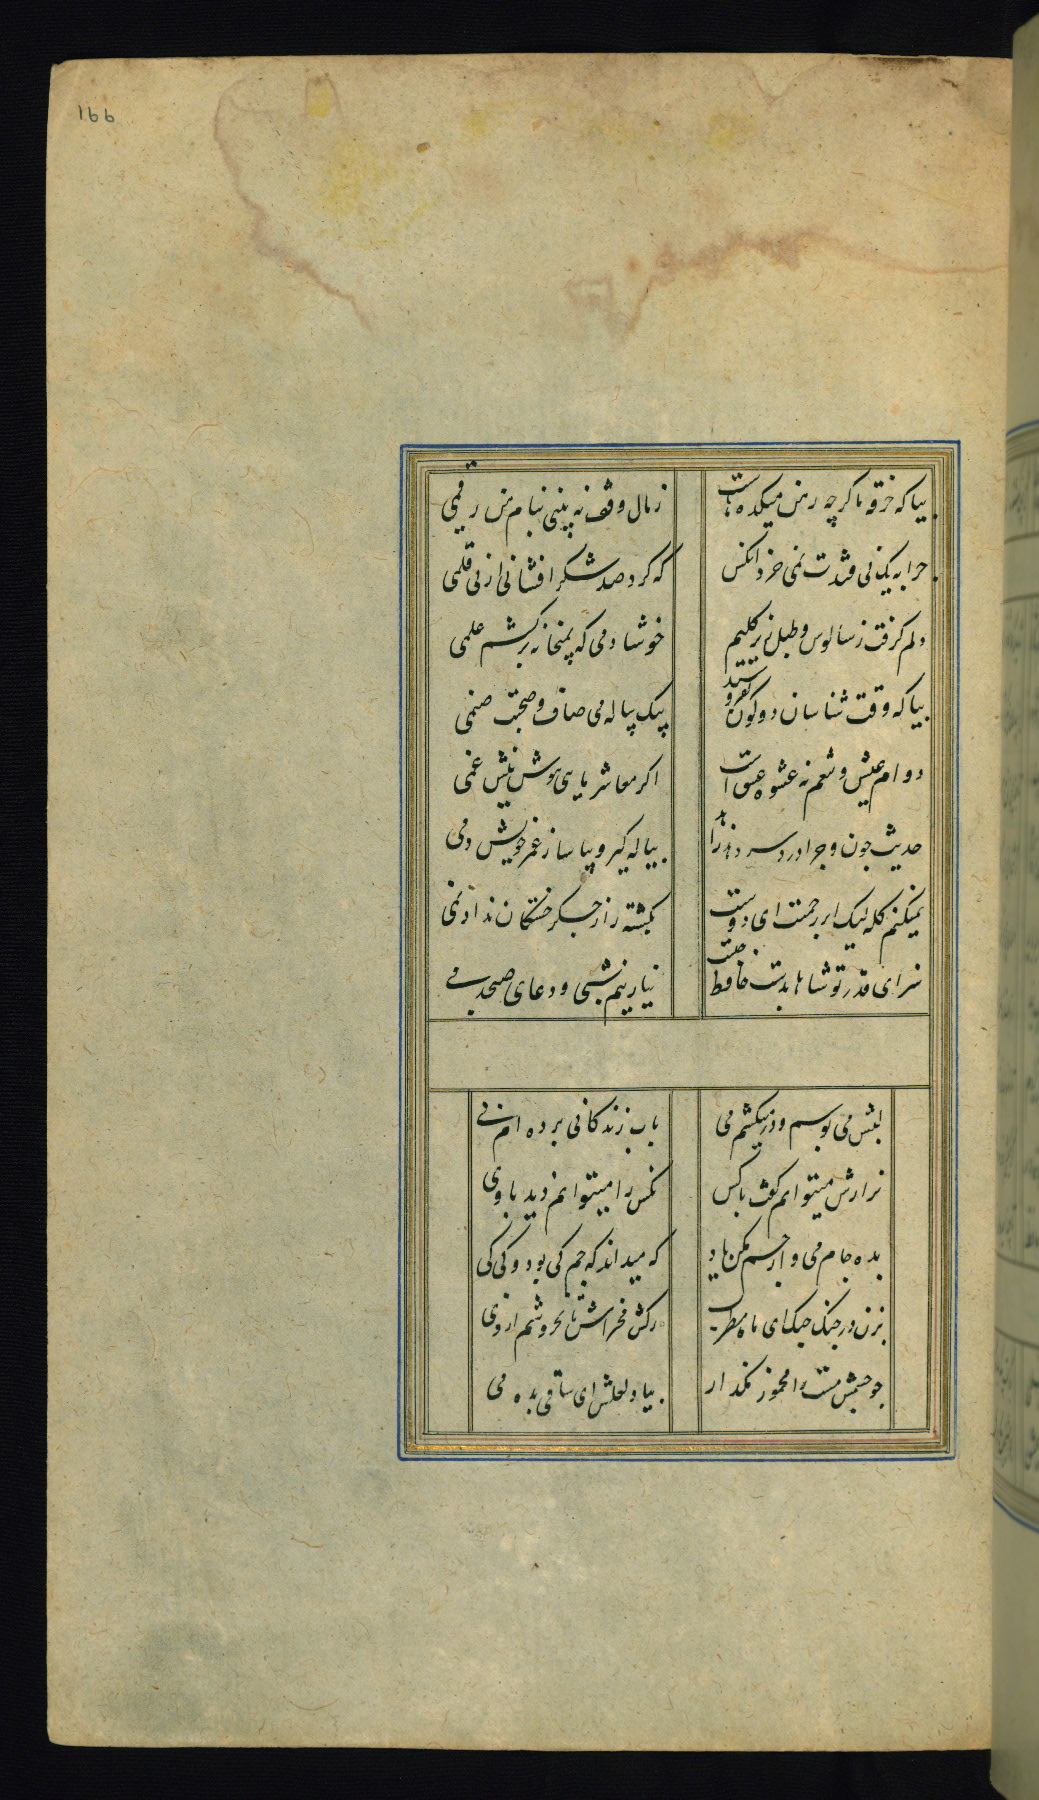 166
بیا که خرقه ما گرچه رهن میکده هاست
ز مال وقف نه بینی بنام من رقمی
چرا به یک نی قندت نمی خرد انکس
که کرد صد شکر افشانی از نی قلمی
دلم گرفت ز سالوس و طبل زیر گلیم
خوشا دمی که بمیخانه برکشم علمی
بیا که وقت شناسان دو کون بفروشند
بیک پیاله می صاف و صحبت صنمی
دوام عیش و تنعم نه شیوه عشق است
اگر معاشر مایی بنوش نیش غمی
حدیث چون و چرا درد سر دهد زاهد
پیاله گیر و بیاساز عمر خویش دمی
نمیکنم گله لیک ابر رحمت ای دوست
بکشته زار جگر خستگان نداد نمی
سزای قدر تو شاها بدست حافظ چیست
نیاز نیم شبی و دعای صبحدمی
لبش می بوسم و درمیکشم می
باب زندگانی برده ام پی
نه رازش میتوانم گفت باکس
نه کس را میتوانم دید با وی
بده جام می و از جم مکن یاد
که میداند که جم کی بود و کی کی
بزن در چنگ چنگ ای ماه مطرب
رگش بخراش تا بخروشم از وی
چو چشمش مست را مخمور مگذار
بیاد لعلش ای ساقی بده می